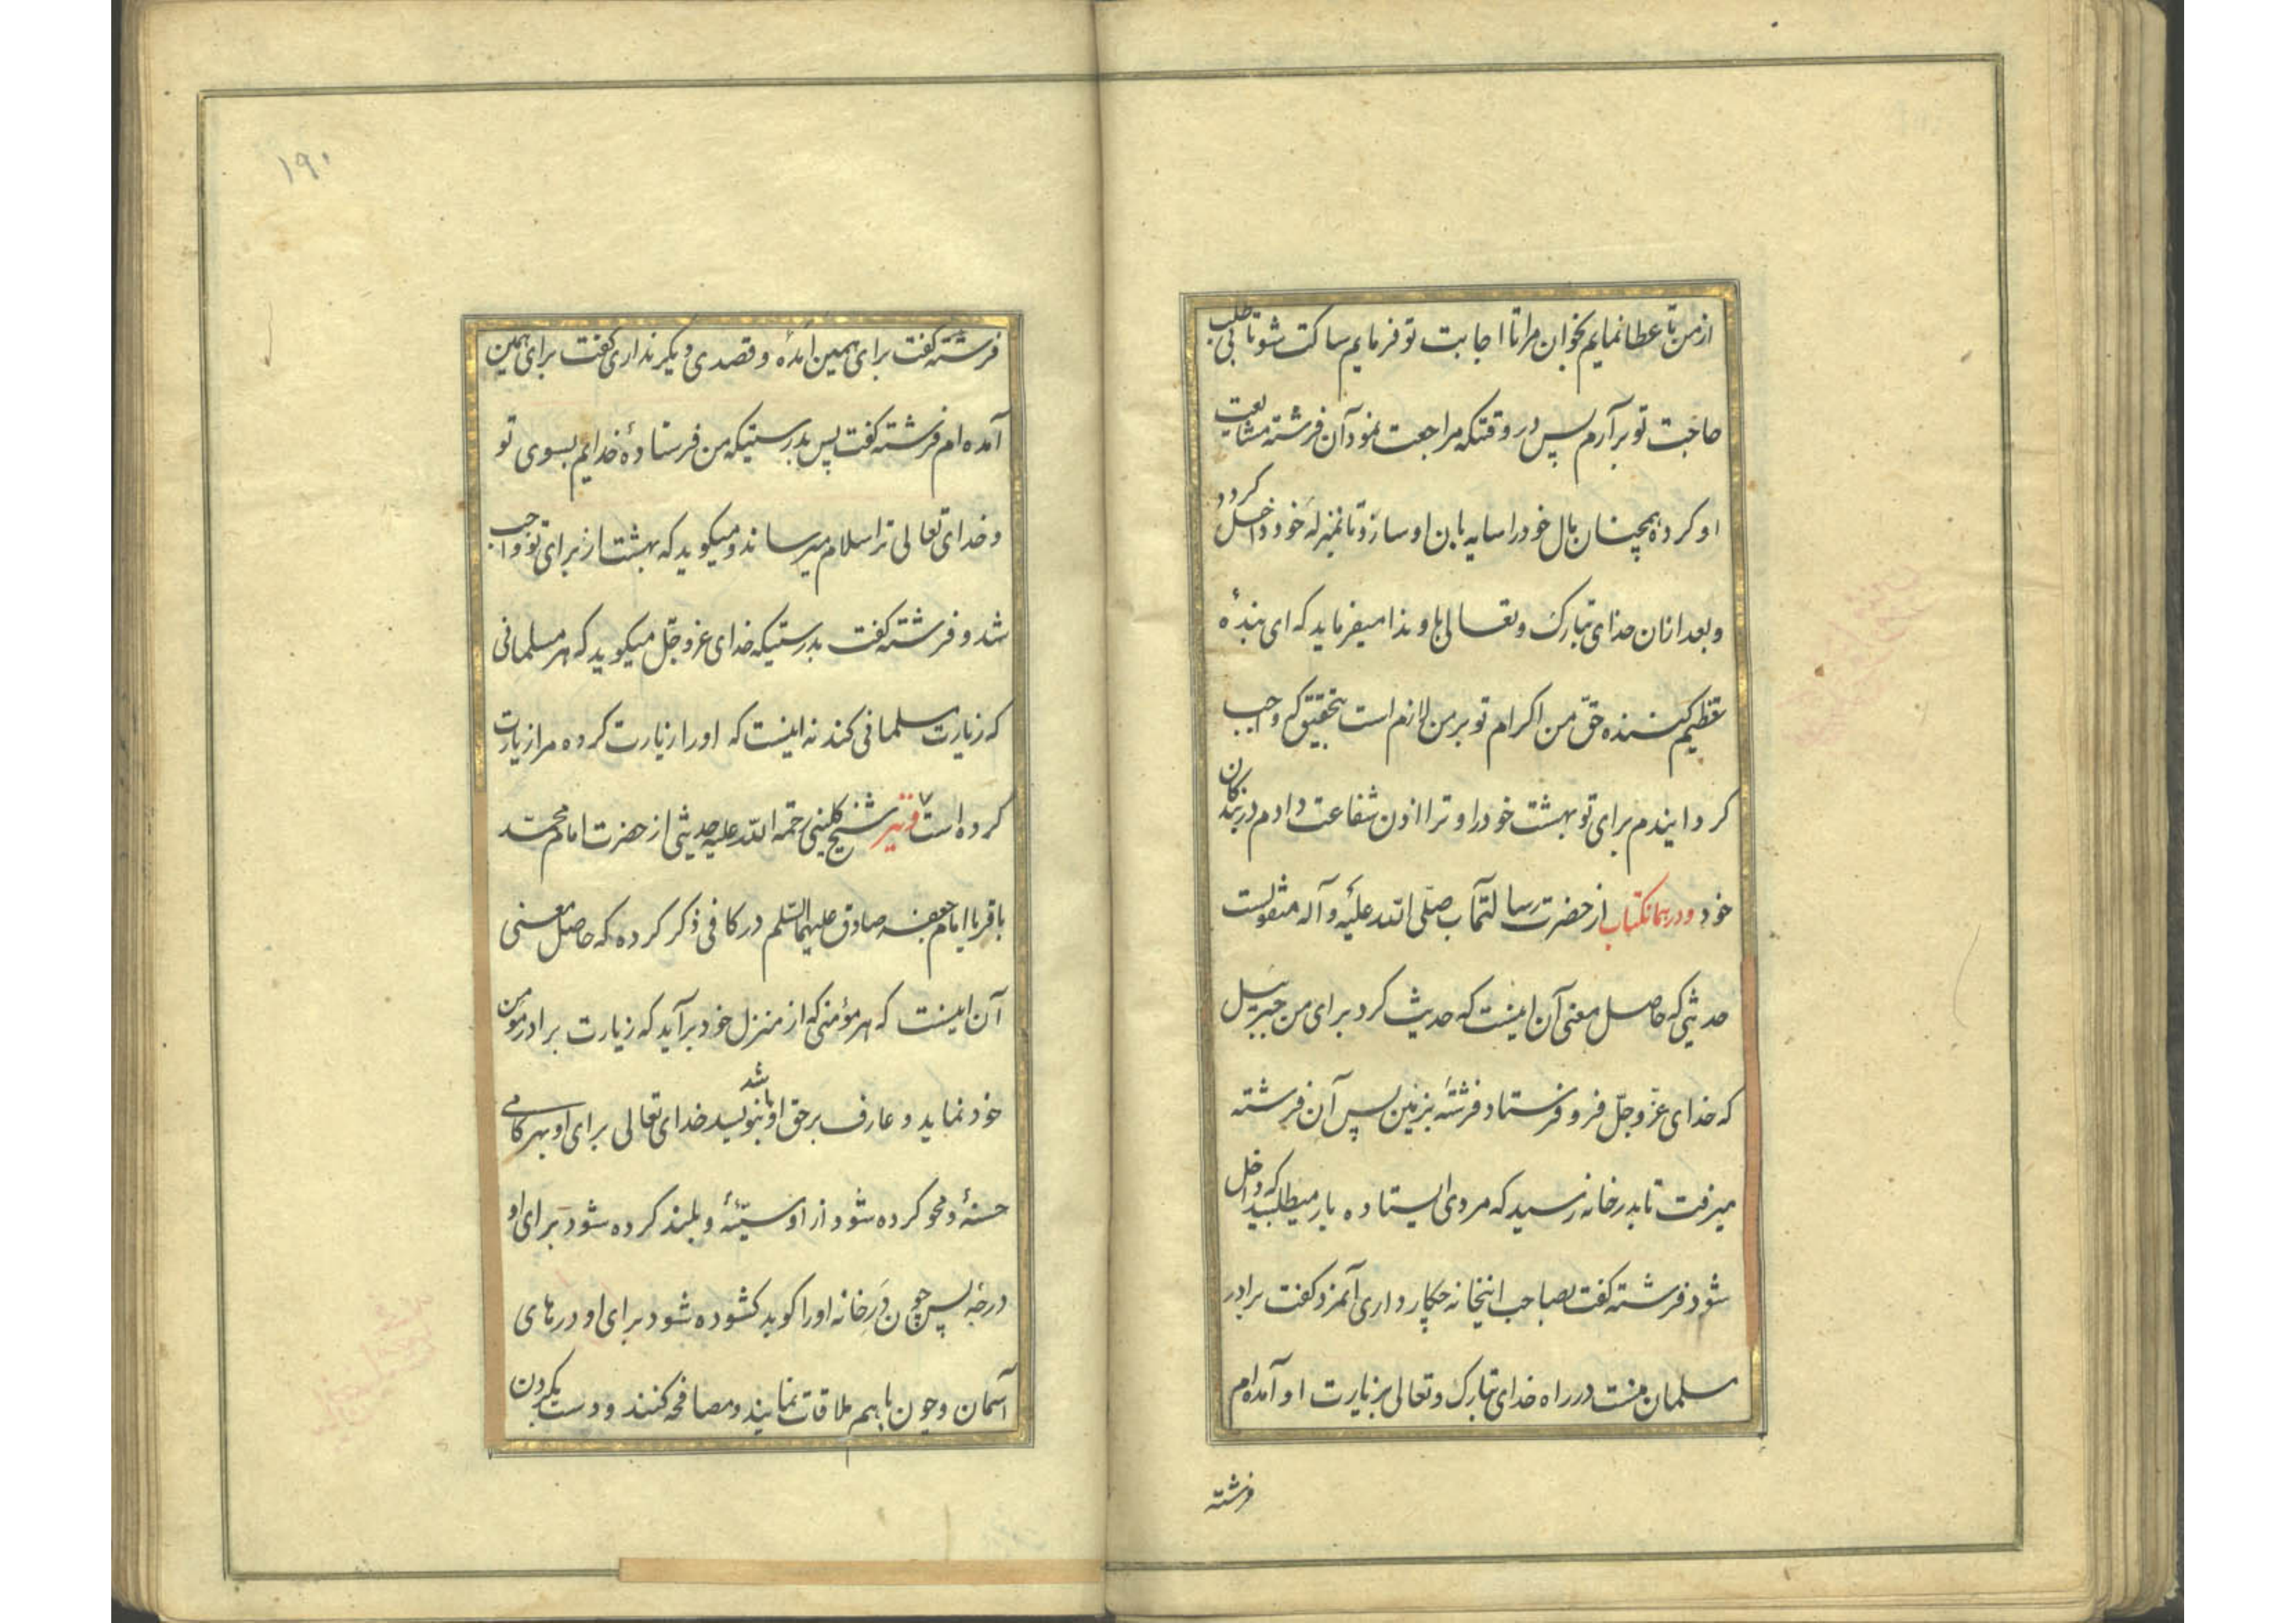 از من تا عطا نمایم بخوان مرا تا اجابت تو فرمایم ساکت شو تا بی طلب
حاجت تو برآرم پس در وقتیکه مراجعت نمود آن فرشته مشایعت
او کرده همچنان بال خود را سایه بان او سازد تا بمنزله خود داخل کردد
و بعد ازان خدای تبارک و تعالی باو ندا میفرماید که ای بندهٔ
تعظیم کننده حق من اکرام تو بر من لازم است بتحقیق که واجب
کردانیدم برای تو بهشت خود را و ترا اذن شفاعت دادم در بندکان
خود و در همانکتاب از حضرت رسالتمآب صلّی الله علیه و آله منقولست
حدیثی که حاصل معنی آن اینست که حدیث کرد برای من جبرییل
که خدای عزّ و جلّ فرو فرستاد فرشتهٔ بزمین پس آن فرشته
میرفت تا بدر خانه رسید که مردی ایستاده بار میطلبید که داخل
شود فرشته کفت بصاحب اینخانه چکار داری آنمرد کفت برادر
مسلمان منست در راه خدای تبارک و تعالی بزیارت او آمده‌ام
فرشته
۱۹۰
فرشته کفت برای همین آمدهٔ و قصدی دیکر نداری کفت برای همین
آمده ام فرشته کفت پس بدرستیکه من فرستادهٔ خدایم بسوی تو
و خدای تعالی ترا سلام میرساند و میکوید که بهشت از برای تو واجب
شد و فرشته کفت بدرستیکه خدای عزّ و جلّ میکوید که هر مسلمانی
که زیارت مسلمانی کند نه اینست که او را زیارت کرده مرا زیارت
کرده است و نیز شیخ کلینی رحمه الله علیه حدیثی از حضرت امام محمّد
باقر یا امام جعفر صادق علیهما السّلم در کافی ذکر کرده که حاصل معنی
آن اینست که هر مؤمنی که از منزل خود برآید که زیارت برادر مؤمن
خود نماید و عارف بر حق او باشد بنویسد خدای تعالی برای او بهر کامی
حسنهٔ و محو کرده شود از او سیّئهٔ و بلند کرده شود برای او
درجهٔ پس چون دَرِ خانه او را کوبد کشوده شود برای او درهای
آسمان و چون با هم ملاقات نمایند و مصافحه کنند و دست بکردن